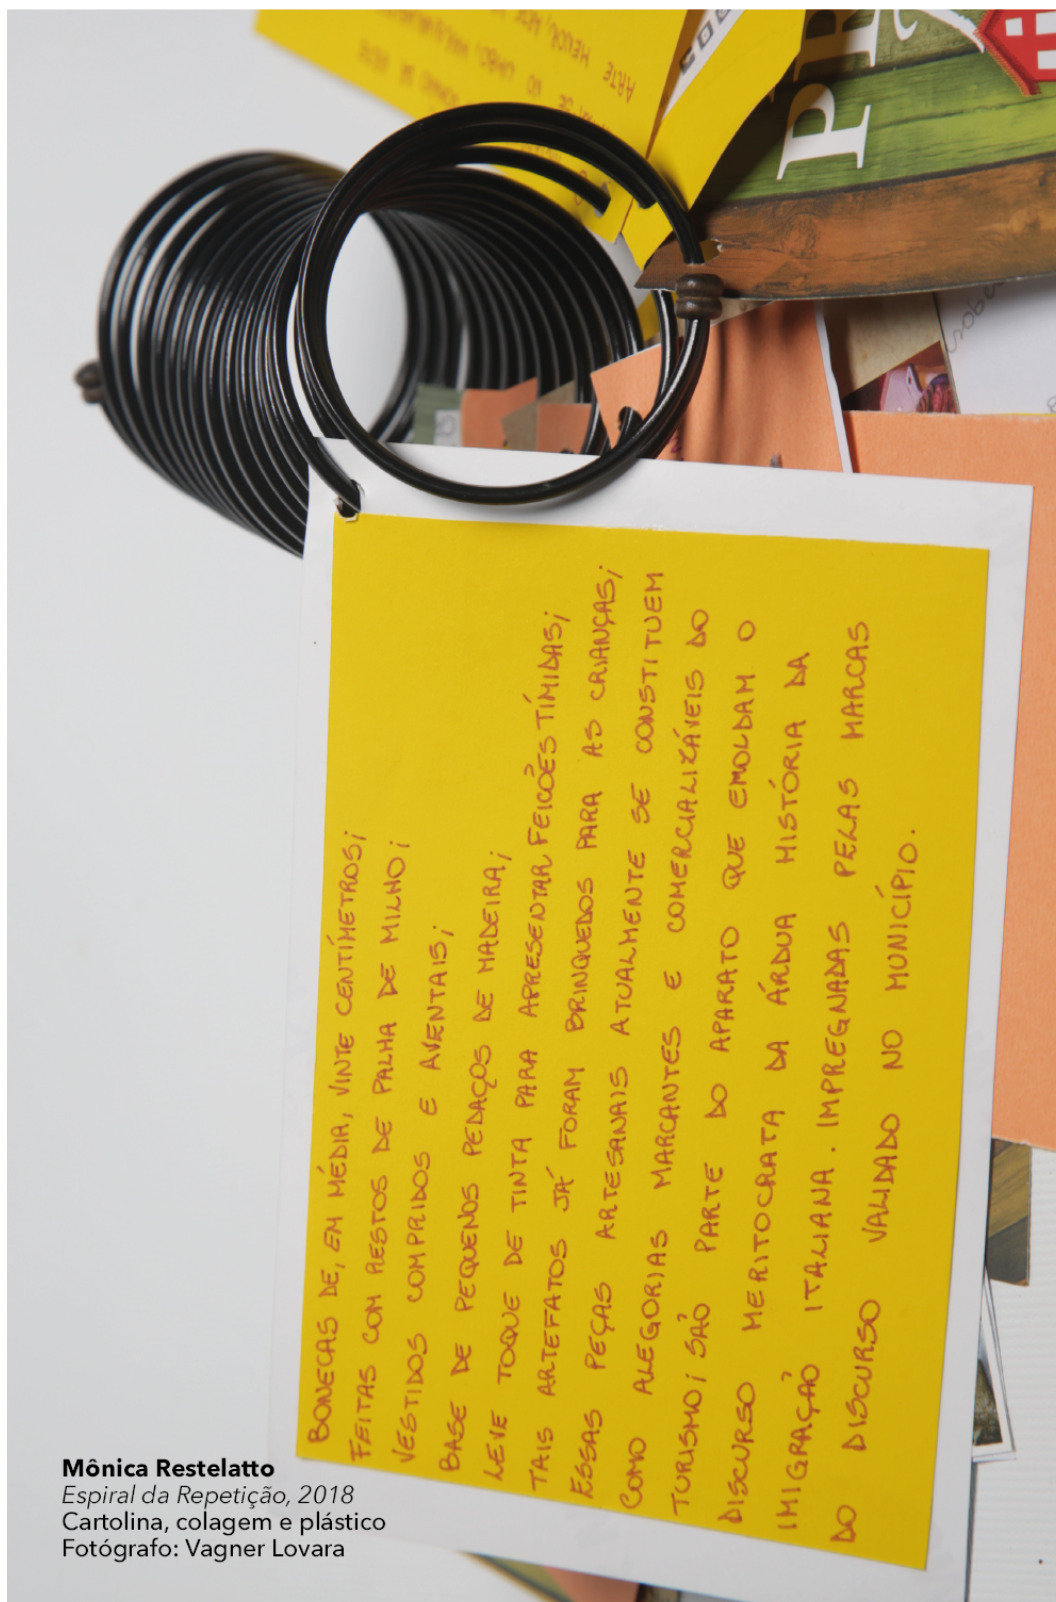 ARTE MENOR, ARTE
PR
BONECAS DE, EM MÉDIA, VINTE CENTÍMETROS;
FEITAS COM RESTOS DE PALHA DE MILHO;
VESTIDOS COMPRIDOS E AVENTAIS;
BASE DE PEQUENOS PEDAÇOS DE MADEIRA;
LEVE TOQUE DE TINTA PARA APRESENTAR FEICÕES TÍMIDAS;
TAIS ARTEFATOS JÁ FORAM BRINQUEDOS PARA AS CRIANÇAS;
ESSAS PEÇAS ARTESANAIS ATUALMENTE SE CONSTITUEM
COMO ALEGORIAS MARCANTES E COMERCIALIZÁVEIS DO
TURISMO; SÃO PARTE DO APARATO QUE EMOLDAM O
DISCURSO MERITOCRATA DA ÁRDUA HISTÓRIA DA
IMIGRAÇÃO ITALIANA. IMPREGNADAS PELAS MARCAS
DO DISCURSO VALIDADO NO MUNICÍPIO.
Mônica Restelatto
Espiral da Repetição, 2018
Cartolina, colagem e plástico
Fotógrafo: Vagner Lovara